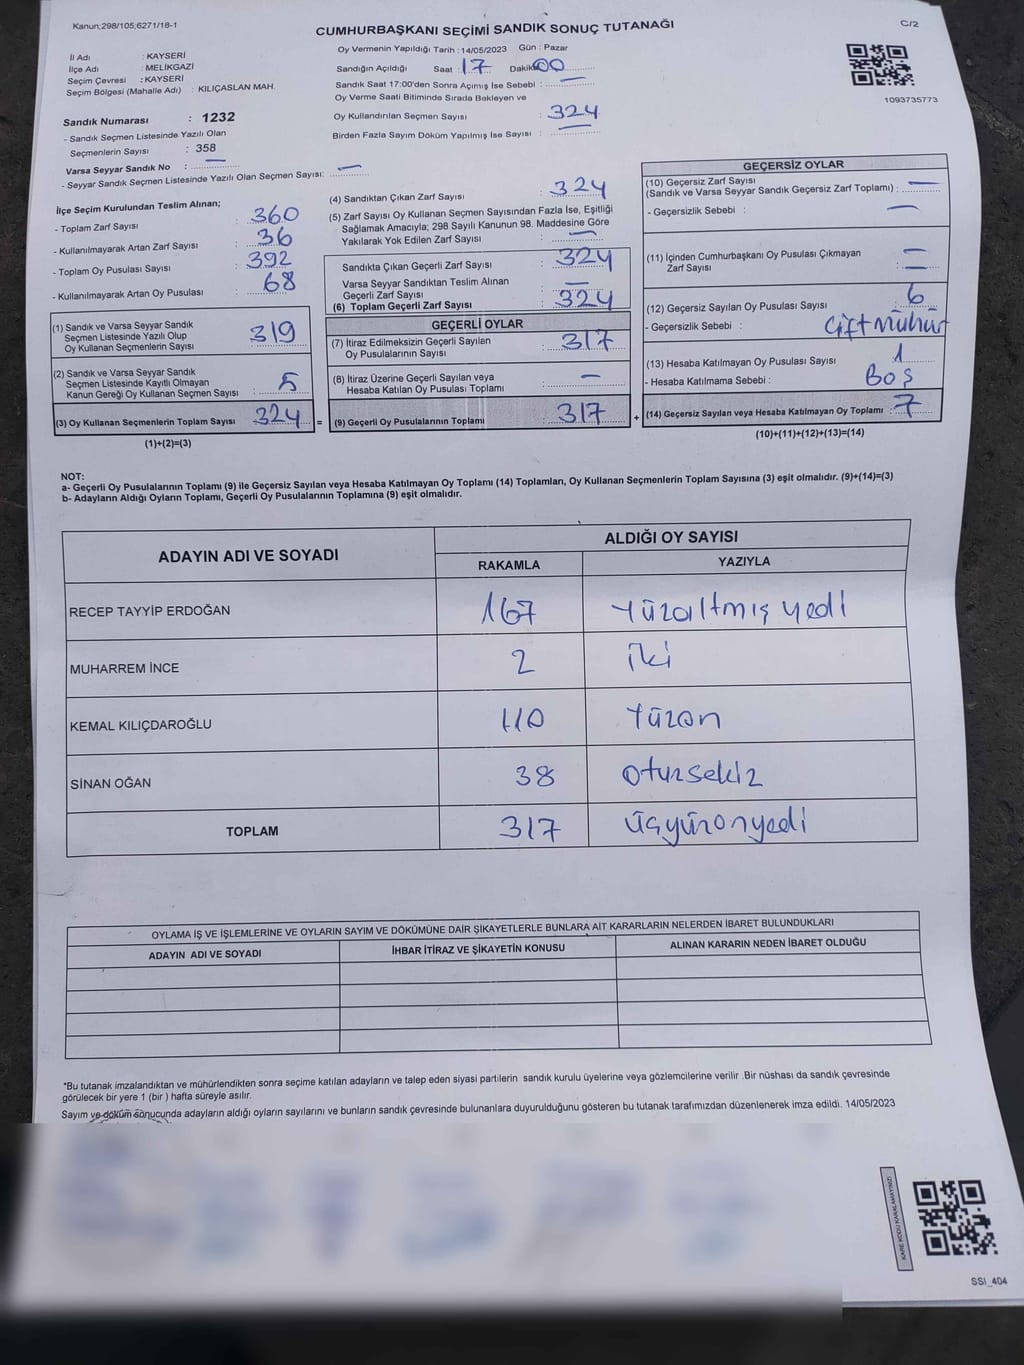 Kanun;298/105;6271/18-1
CUMHURBAŞKANI SEÇİMİ SANDIK SONUÇ TUTANAĞI
C/2
İl Adı : KAYSERİ
İlçe Adı : MELİKGAZİ
Seçim Çevresi : KAYSERİ
Seçim Bölgesi (Mahalle Adı) : KILIÇASLAN MAH.
Sandık Numarası : 1232
- Sandık Seçmen Listesinde Yazılı Olan
Seçmenlerin Sayısı : 358
Varsa Seyyar Sandık No : —
- Seyyar Sandık Seçmen Listesinde Yazılı Olan Seçmen Sayısı: —
Oy Vermenin Yapıldığı Tarih : 14/05/2023 Gün : Pazar
Sandığın Açıldığı Saat : 17 Dakika 00
Sandık Saat 17:00'den Sonra Açılmış İse Sebebi : —
Oy Verme Saati Bitiminde Sırada Bekleyen ve
Oy Kullandırılan Seçmen Sayısı : 324
Birden Fazla Sayım Döküm Yapılmış İse Sayısı : —
1093735773
İlçe Seçim Kurulundan Teslim Alınan;
- Toplam Zarf Sayısı : 360
- Kullanılmayarak Artan Zarf Sayısı : 36
- Toplam Oy Pusulası Sayısı : 392
- Kullanılmayarak Artan Oy Pusulası : 68
(1) Sandık ve Varsa Seyyar Sandık
Seçmen Listesinde Yazılı Olup
Oy Kullanan Seçmenlerin Sayısı : 319
(2) Sandık ve Varsa Seyyar Sandık
Seçmen Listesinde Kayıtlı Olmayan
Kanun Gereği Oy Kullanan Seçmen Sayısı : 5
(3) Oy Kullanan Seçmenlerin Toplam Sayısı 324 =
(1)+(2)=(3)
(4) Sandıktan Çıkan Zarf Sayısı : 324
(5) Zarf Sayısı Oy Kullanan Seçmen Sayısından Fazla İse, Eşitliği
Sağlamak Amacıyla; 298 Sayılı Kanunun 98. Maddesine Göre
Yakılarak Yok Edilen Zarf Sayısı : —
Sandıkta Çıkan Geçerli Zarf Sayısı : 324
Varsa Seyyar Sandıktan Teslim Alınan
Geçerli Zarf Sayısı : —
(6) Toplam Geçerli Zarf Sayısı : 324
GEÇERLİ OYLAR
(7) İtiraz Edilmeksizin Geçerli Sayılan
Oy Pusulalarının Sayısı : 317
(8) İtiraz Üzerine Geçerli Sayılan veya
Hesaba Katılan Oy Pusulası Toplamı : —
(9) Geçerli Oy Pusulalarının Toplamı : 317 +
GEÇERSİZ OYLAR
(10) Geçersiz Zarf Sayısı
(Sandık ve Varsa Seyyar Sandık Geçersiz Zarf Toplamı) : —
- Geçersizlik Sebebi : —
(11) İçinden Cumhurbaşkanı Oy Pusulası Çıkmayan
Zarf Sayısı : —
(12) Geçersiz Sayılan Oy Pusulası Sayısı : 6
- Geçersizlik Sebebi : Çift Mühür
(13) Hesaba Katılmayan Oy Pusulası Sayısı : 1
- Hesaba Katılmama Sebebi : Boş
(14) Geçersiz Sayılan veya Hesaba Katılmayan Oy Toplamı : 7
(10)+(11)+(12)+(13)=(14)
NOT:
a- Geçerli Oy Pusulalarının Toplamı (9) ile Geçersiz Sayılan veya Hesaba Katılmayan Oy Toplamı (14) Toplamları, Oy Kullanan Seçmenlerin Toplam Sayısına (3) eşit olmalıdır. (9)+(14)=(3)
b- Adayların Aldığı Oyların Toplamı, Geçerli Oy Pusulalarının Toplamına (9) eşit olmalıdır.
ADAYIN ADI VE SOYADI
ALDIĞI OY SAYISI
RAKAMLA YAZIYLA
RECEP TAYYİP ERDOĞAN 167 Yüzaltmış yedi
MUHARREM İNCE 2 iki
KEMAL KILIÇDAROĞLU 110 Yüzon
SİNAN OĞAN 38 otuzsekiz
TOPLAM 317 üçyüzonyedi
OYLAMA İŞ VE İŞLEMLERİNE VE OYLARIN SAYIM VE DÖKÜMÜNE DAİR ŞİKAYETLERLE BUNLARA AİT KARARLARIN NELERDEN İBARET BULUNDUKLARI
ADAYIN ADI VE SOYADI İHBAR İTİRAZ VE ŞİKAYETİN KONUSU ALINAN KARARIN NEDEN İBARET OLDUĞU
*Bu tutanak imzalandıktan ve mühürlendikten sonra seçime katılan adayların ve talep eden siyasi partilerin sandık kurulu üyelerine veya gözlemcilerine verilir .Bir nüshası da sandık çevresinde
görülecek bir yere 1 (bir ) hafta süreyle asılır.
Sayım ve döküm sonucunda adayların aldığı oyların sayılarını ve bunların sandık çevresinde bulunanlara duyurulduğunu gösteren bu tutanak tarafımızdan düzenlenerek imza edildi. 14/05/2023
KARE KODU KARALAMAYINIZ!
SSI_404